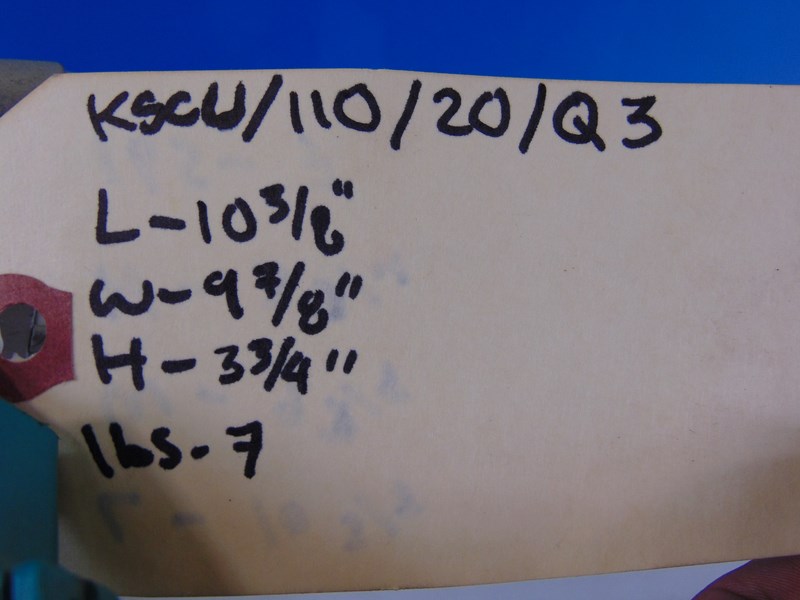 KSCU/110/20/Q3
L-10 3/8"
W-9 7/8"
H-3 3/4"
lbs-7